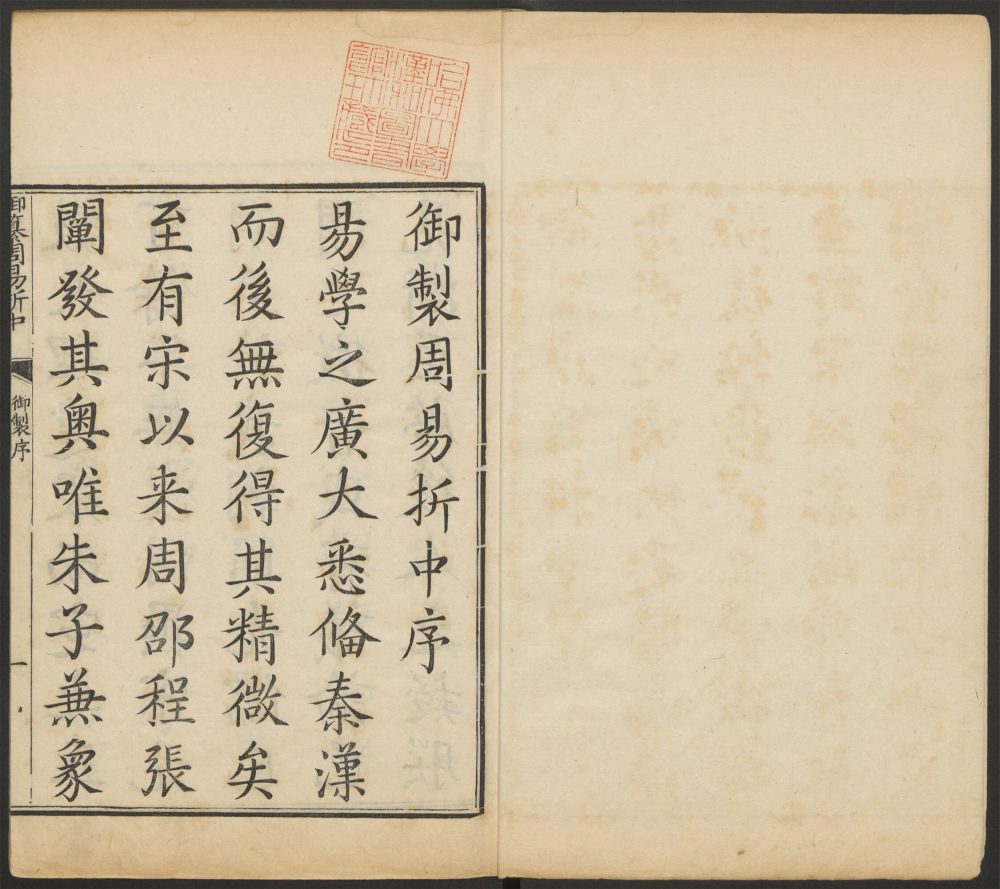 哈佛大學
漢和圖書
館珍藏印
御製周易折中序
易學之廣大悉備秦漢
而後無復得其精微矣
至有宋以来周邵程張
闡發其奧唯朱子兼象
御纂周易折中
御製序
一